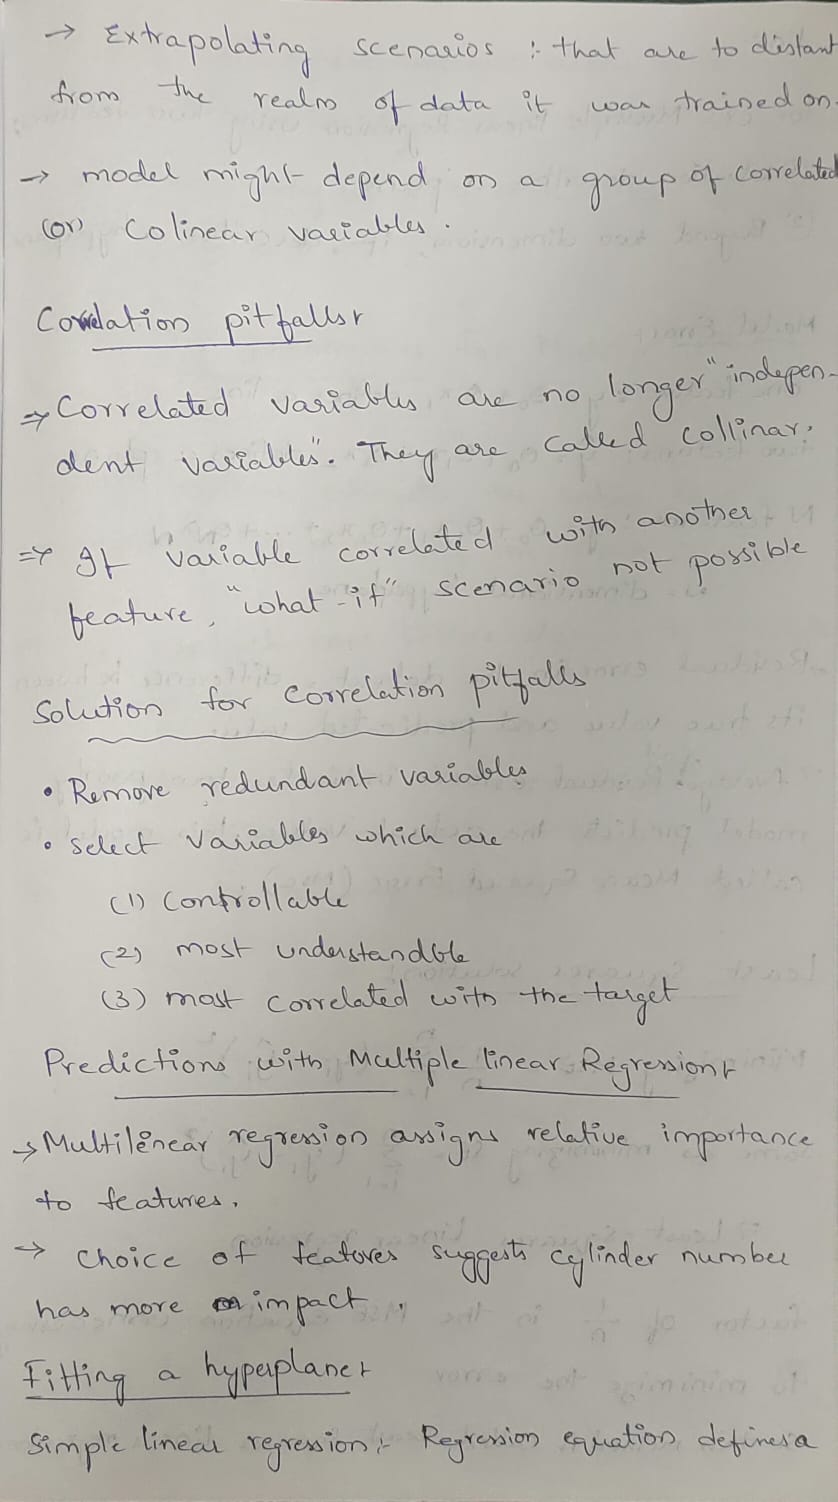 → Extrapolating scenarios :- that are to distant
from the realm of data it was trained on.
→ model might depend on a group of correlated
(or) Colinear variables.
Correlation pitfalls :-
⇒ Correlated variables are no longer "indepen-
dent variables". They are called collinar.
⇒ If variable correlated with another
feature, "what-if" scenario not possible
Solution for Correlation pitfalls
• Remove redundant variables
• select variables which are
(1) Controllable
(2) most understandble
(3) most correlated with the target
Predictions with Multiple linear Regression :-
→ Multilinear regression assigns relative importance
to features.
→ choice of features suggests cylinder number
has more impact.
Fitting a hyperplane :-
Simple linear regression :- Regression equation defines a